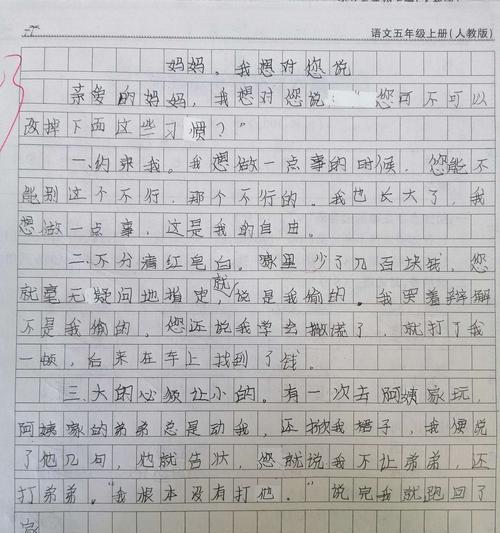 语文五年级上册(人教版)
妈妈，我想对您说
亲爱的妈妈，我想对您说："您可不可以
改掉下面这些习惯？"
一.约束我。我想做一点事的时候，您能不
能别这个不行，那个不行的。我也长大了，我
想做一点事，这是我的自由。
二.不分清红皂白。家里少了几百块钱，您
就毫无疑问地指定，就说是我偷的。我哭着辩解
不是我偷的，您还说我学会撒谎了，就打了我
一顿，后来在车上找到了钱。
三.大的必须让小的。有一次去阿姨家玩，
阿姨家的弟弟总是动我，还掀我裙子，我便说
了他几句，他就告状，您就说我不让弟弟，还
打弟弟。"我根本没有打他。"说完我就跑回了
家